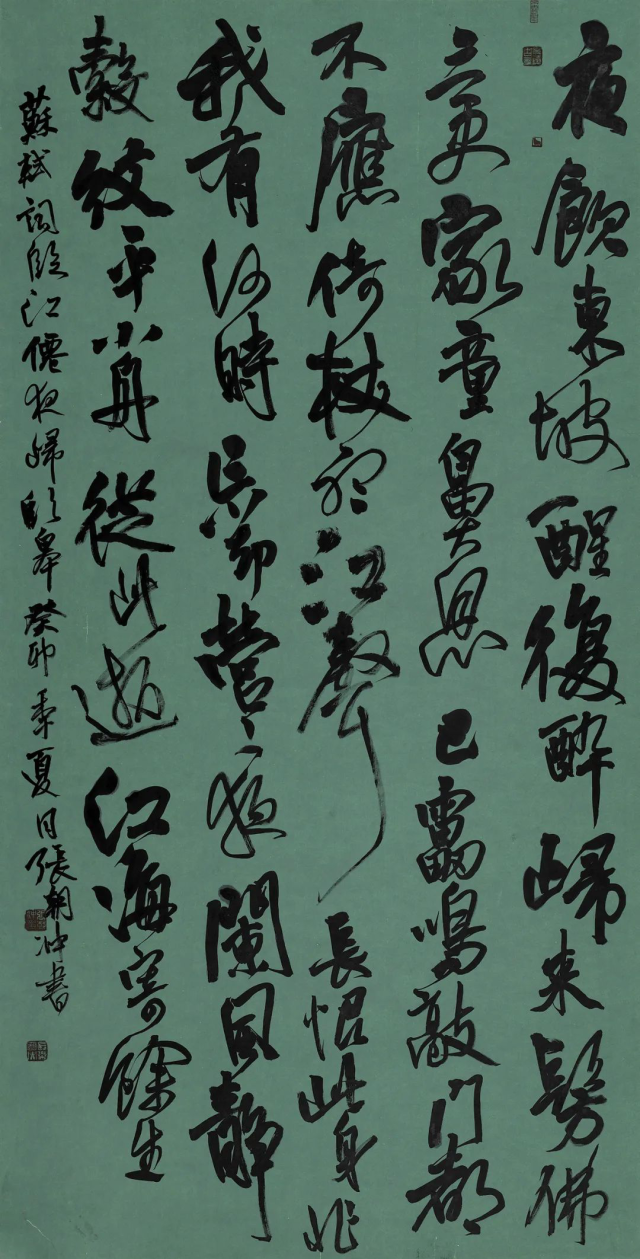 夜飲東坡醒復醉歸来髣佛
三更家童鼻息已雷鳴敲門都
不應倚杖聽江聲長恨此身非
我有何時忘却營々夜闌風靜
縠紋平小舟從此逝江海寄餘生
蘇軾詞臨江僊夜歸臨皋癸卯季夏月張朝冲書